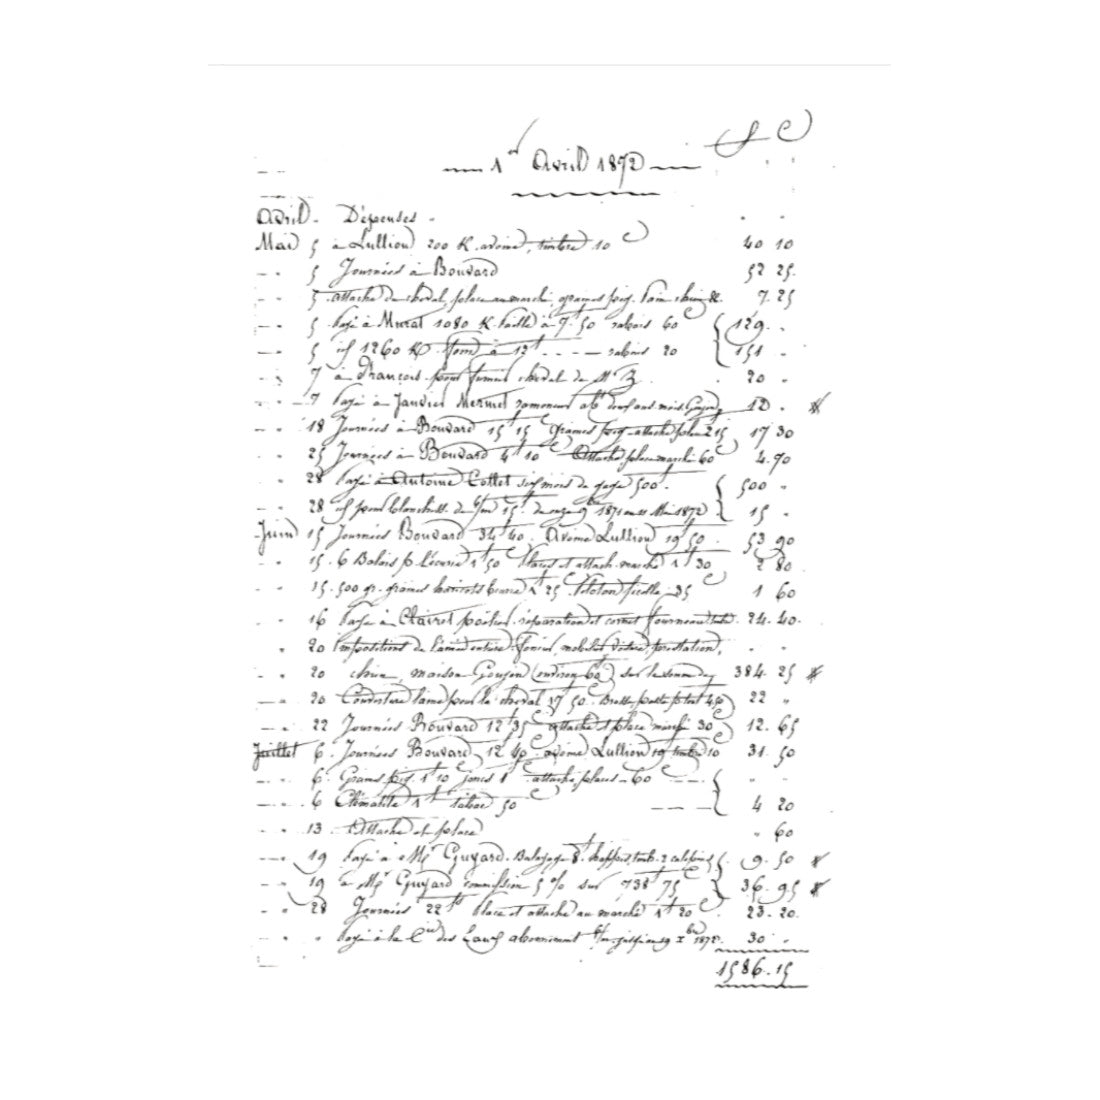 f C
1er Avril 1872
Avril - Dépenses -
Mai 5 à Lullion 200 K. avoine, timbre 10 c 40 10
- - 5 Journées à Bouvard 52 25.
- - 5 attache du cheval, place au marché, graines pig. Foin &. 7. 25
- - 5 Payé à Murat 1080 K. Paille à 7f 50 rabais 60 129. -
- - 5 id 1260 K. foin à 12f - - - - rabais 20 151 -
- - 7 à François pour fumier cheval de Mr B 20 -
- - 7 Payé à Janvier Mermet ramoneur 12 -
- - 18 Journées à Bouvard 15f 15c graines pig. attache place 2 15 17 30
- - 25 Journées à Bouvard 4f 10c Attache place marché 60c 4. 70
- - 28 Payé à Antoine Collet six mois de gage 500f. 500 -
- - 28 id pour blanchiss. 15f. 1871 au 11 Mai 1872 15 -
Juin 15 Journées Bouvard 34f 40. Avoine Lullion 19f 50. 53 90
- - 15. 6 Balais p. l'écurie 1f 50c Places et attach. marché 1f 30c 2 80
- - 15. 500 gr. graines haricots beurre 1f 25c Peloton ficelle - 35c 1 60
- - 16 Payé à Clairet poêlier. réparation et cornet fourneau 24. 40.
- 20 Impositions de l'année entière foncier, mobilier voiture, prestation,
- - 20 chien, maison Goujon (environ 60f) 384. 25
- - 20 Couverture laine pour le cheval 17f 50. 4.50 22 "
- - 22 Journées Bouvard 12f 35c attache et place marché 30c 12. 65
Juillet 6. Journées Bouvard, 12. 40. avoine Lullion 19 timbre 10c 31. 50
- - 6. Grains pig. 1f 10c joncs 1f attache, places - 60c
- - 6 Clématite 1f tabac 50c 4 20
- - 13 Attache et place " 60
- - 19 Payé à Mr Guyard. Balayage 8f. 9. 50
- - 19 à Mr Guyard commission 5 % sur 738f 75c 36. 95
- - 28 Journées 22f Place et attache au marché 1f 20c 23. 20.
- - " Payé à la Cie des Eaux abonnement jusqu'au 9 Xbre 1872. 30 -
1586. 15